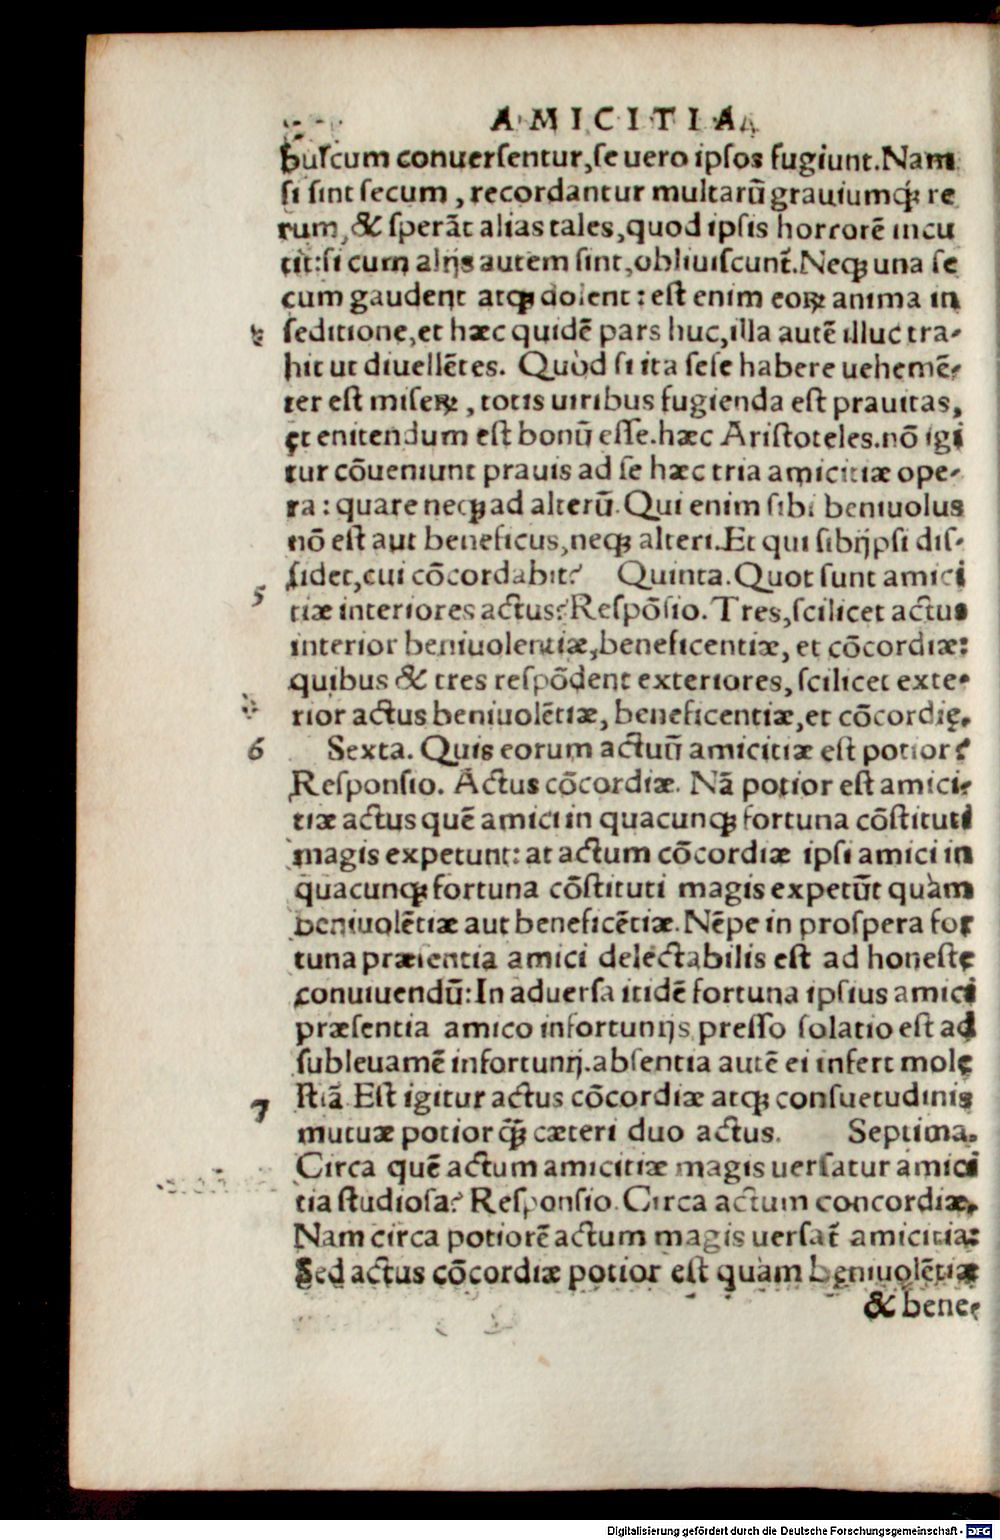 AMICITIA
buſcum conuerſentur, ſe uero ipſos fugiunt. Nam
ſi ſint ſecum, recordantur multarũ grauiumq́; re
rum, & ſperãt alias tales, quod ipſis horrorẽ incu
tit: ſi cum alijs autem ſint, obliuiſcunt̃. Neq; una ſe
cum gaudent atq; dolent: eſt enim eoꝝ anima in
ſeditione, et hæc quidẽ pars huc, illa autẽ illuc tra-
hit ut diuellẽtes. Quòd ſi ita ſeſe habere uehemẽ-
ter eſt miſeꝝ, totis uiribus fugienda eſt prauitas,
et enitendum eſt bonũ eſſe. hæc Ariſtoteles. nõ igi
tur cõueniunt prauis ad ſe hæc tria amicitiæ ope-
ra: quare neq; ad alterũ. Qui enim ſibi beniuolus
nõ eſt aut beneficus, neq; alteri. Et qui ſibijpſi diſ-
ſidet, cui cõcordabit? Quinta. Quot ſunt amici
5
tiæ interiores actus? Reſpõſio. Tres, ſcilicet actus
interior beniuolentiæ, beneficentiæ, et cõcordiæ:
quibus & tres reſpõdent exteriores, ſcilicet exte-
rior actus beniuolẽtiæ, beneficentiæ, et cõcordię.
6 Sexta. Quis eorum actuũ amicitiæ eſt potior?
Reſponſio. Actus cõcordiæ. Nã potior eſt amici-
tiæ actus quẽ amici in quacunq; fortuna cõſtituti
magis expetunt: at actum cõcordiæ ipſi amici in
quacunq; fortuna cõſtituti magis expetũt quàm
beniuolẽtiæ aut beneficẽtiæ. Nẽpe in proſpera for
tuna præſentia amici delectabilis eſt ad honeſte
conuiuendũ: In aduerſa itidẽ fortuna ipſius amici
præſentia amico infortunijs preſſo ſolatio eſt ad
ſubleuamẽ infortunij. abſentia autẽ ei infert mole
ſtiã. Eſt igitur actus cõcordiæ atq; conſuetudinis
7
mutuæ potior q̃; cæteri duo actus. Septima.
Circa quẽ actum amicitiæ magis uerſatur amici
tia ſtudioſa? Reſponſio. Circa actum concordiæ.
Nam circa potiorẽ actum magis uerſat̃ amicitia:
Sed actus cõcordiæ potior eſt quàm beniuolẽtiæ
& bene-
Digitalisierung gefördert durch die Deutsche Forschungsgemeinschaft - DFG